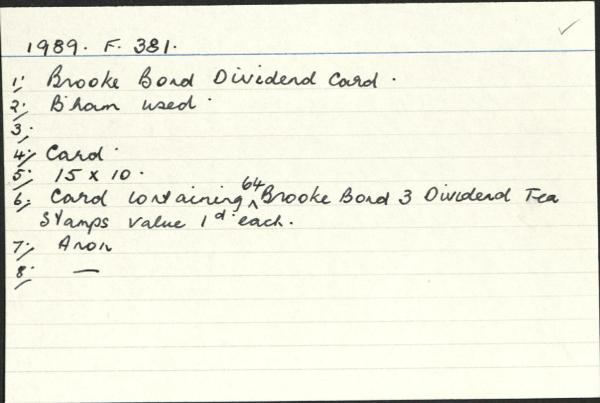 1989. F. 381.
1; Brooke Bond Dividend Card.
2; B'ham used.
3;
4; Card.
5; 15 x 10.
6; Card containing 64 Brooke Bond 3 Dividend Tea
Stamps value 1d each.
7; Anon
8; —